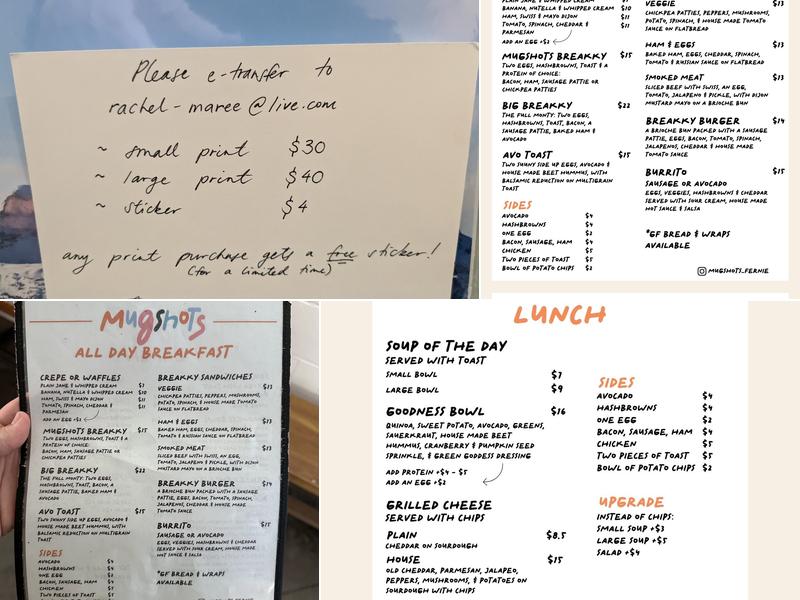 Please e-transfer to
rachel-maree@live.com
~ small print $30
~ large print $40
~ sticker $4
any print purchase gets a free sticker!
(for a limited time)
BANANA, NUTELLA & WHIPPED CREAM $10
HAM, SWISS & MAYO DIJON $11
TOMATO, SPINACH, CHEDDAR & $11
PARMESAN
ADD AN EGG +$2
MUGSHOTS BREAKKY $15
TWO EGGS, HASHBROWNS, TOAST & A
PROTEIN OF CHOICE:
BACON, HAM, SAUSAGE PATTIE OR
CHICKPEA PATTIES
BIG BREAKKY $22
THE FULL MONTY: TWO EGGS,
HASHBROWNS, TOAST, BACON, A
SAUSAGE PATTIE, BAKED HAM &
AVOCADO
AVO TOAST $15
TWO SUNNY SIDE UP EGGS, AVOCADO &
HOUSE MADE BEET HUMMUS, WITH
BALSAMIC REDUCTION ON MULTIGRAIN
TOAST
SIDES
AVOCADO $4
HASHBROWNS $4
ONE EGG $2
BACON, SAUSAGE, HAM $4
CHICKEN $5
TWO PIECES OF TOAST $5
BOWL OF POTATO CHIPS $2
VEGGIE $13
CHICKPEA PATTIES, PEPPERS, MUSHROOMS,
POTATO, SPINACH, & HOUSE MADE TOMATO
SAUCE ON FLATBREAD
HAM & EGGS $13
BAKED HAM, EGGS, CHEDDAR, SPINACH,
TOMATO & RUSSIAN SAUCE ON FLATBREAD
SMOKED MEAT $13
SLICED BEEF WITH SWISS, AN EGG,
TOMATO, JALAPENO & PICKLE, WITH DIJON
MUSTARD MAYO ON A BRIOCHE BUN
BREAKKY BURGER $14
A BRIOCHE BUN PACKED WITH A SAUSAGE
PATTIE, EGGS, BACON, TOMATO, SPINACH,
JALAPENOS, CHEDDAR & HOUSE MADE
TOMATO SAUCE
BURRITO $15
SAUSAGE OR AVOCADO
EGGS, VEGGIES, HASHBROWNS & CHEDDAR
SERVED WITH SOUR CREAM, HOUSE MADE
HOT SAUCE & SALSA
*GF BREAD & WRAPS
AVAILABLE
MUGSHOTS_FERNIE
Mugshots
ALL DAY BREAKFAST
CREPE OR WAFFLES
PLAIN JANE & WHIPPED CREAM $7
BANANA, NUTELLA & WHIPPED CREAM $10
HAM, SWISS & MAYO DIJON $11
TOMATO, SPINACH, CHEDDAR & $11
PARMESAN
ADD AN EGG +$2
MUGSHOTS BREAKKY $15
TWO EGGS, HASHBROWNS, TOAST & A
PROTEIN OF CHOICE:
BACON, HAM, SAUSAGE PATTIE OR
CHICKPEA PATTIES
BIG BREAKKY $22
THE FULL MONTY: TWO EGGS,
HASHBROWNS, TOAST, BACON, A
SAUSAGE PATTIE, BAKED HAM &
AVOCADO
AVO TOAST $15
TWO SUNNY SIDE UP EGGS, AVOCADO &
HOUSE MADE BEET HUMMUS, WITH
BALSAMIC REDUCTION ON MULTIGRAIN
TOAST
SIDES
AVOCADO $4
HASHBROWNS $4
ONE EGG $2
BACON, SAUSAGE, HAM $4
CHICKEN $5
TWO PIECES OF TOAST $5
BREAKKY SANDWICHES
VEGGIE $13
CHICKPEA PATTIES, PEPPERS, MUSHROOMS,
POTATO, SPINACH, & HOUSE MADE TOMATO
SAUCE ON FLATBREAD
HAM & EGGS $13
BAKED HAM, EGGS, CHEDDAR, SPINACH,
TOMATO & RUSSIAN SAUCE ON FLATBREAD
SMOKED MEAT $13
SLICED BEEF WITH SWISS, AN EGG,
TOMATO, JALAPENO & PICKLE, WITH DIJON
MUSTARD MAYO ON A BRIOCHE BUN
BREAKKY BURGER $14
A BRIOCHE BUN PACKED WITH A SAUSAGE
PATTIE, EGGS, BACON, TOMATO, SPINACH,
JALAPENOS, CHEDDAR & HOUSE MADE
TOMATO SAUCE
BURRITO $15
SAUSAGE OR AVOCADO
EGGS, VEGGIES, HASHBROWNS & CHEDDAR
SERVED WITH SOUR CREAM, HOUSE MADE
HOT SAUCE & SALSA
*GF BREAD & WRAPS
AVAILABLE
LUNCH
SOUP OF THE DAY
SERVED WITH TOAST
SMALL BOWL $7
LARGE BOWL $9
GOODNESS BOWL $16
QUINOA, SWEET POTATO, AVOCADO, GREENS,
SAUERKRAUT, HOUSE MADE BEET
HUMMUS, CRANBERRY & PUMPKIN SEED
SPRINKLE, & GREEN GODDESS DRESSING
ADD PROTEIN +$4 - $5
ADD AN EGG +$2
GRILLED CHEESE
SERVED WITH CHIPS
PLAIN $8.5
CHEDDAR ON SOURDOUGH
HOUSE $15
OLD CHEDDAR, PARMESAN, JALAPEO,
PEPPERS, MUSHROOMS, & POTATOES ON
SOURDOUGH WITH CHIPS
SIDES
AVOCADO $4
HASHBROWNS $4
ONE EGG $2
BACON, SAUSAGE, HAM $4
CHICKEN $5
TWO PIECES OF TOAST $5
BOWL OF POTATO CHIPS $2
UPGRADE
INSTEAD OF CHIPS:
SMALL SOUP +$3
LARGE SOUP +$5
SALAD +$4